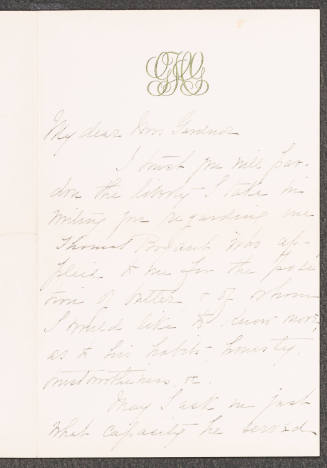 My dear Mrs Gardner
I trust you will par-
don the liberty I take in
writing you regarding one
Thomas who has ap-
plied to me for the posi-
tion of butler & of whom
I would like to know more,
as to his habits - honesty,
trustworthiness, &c.
May I ask in just
what capacity he served